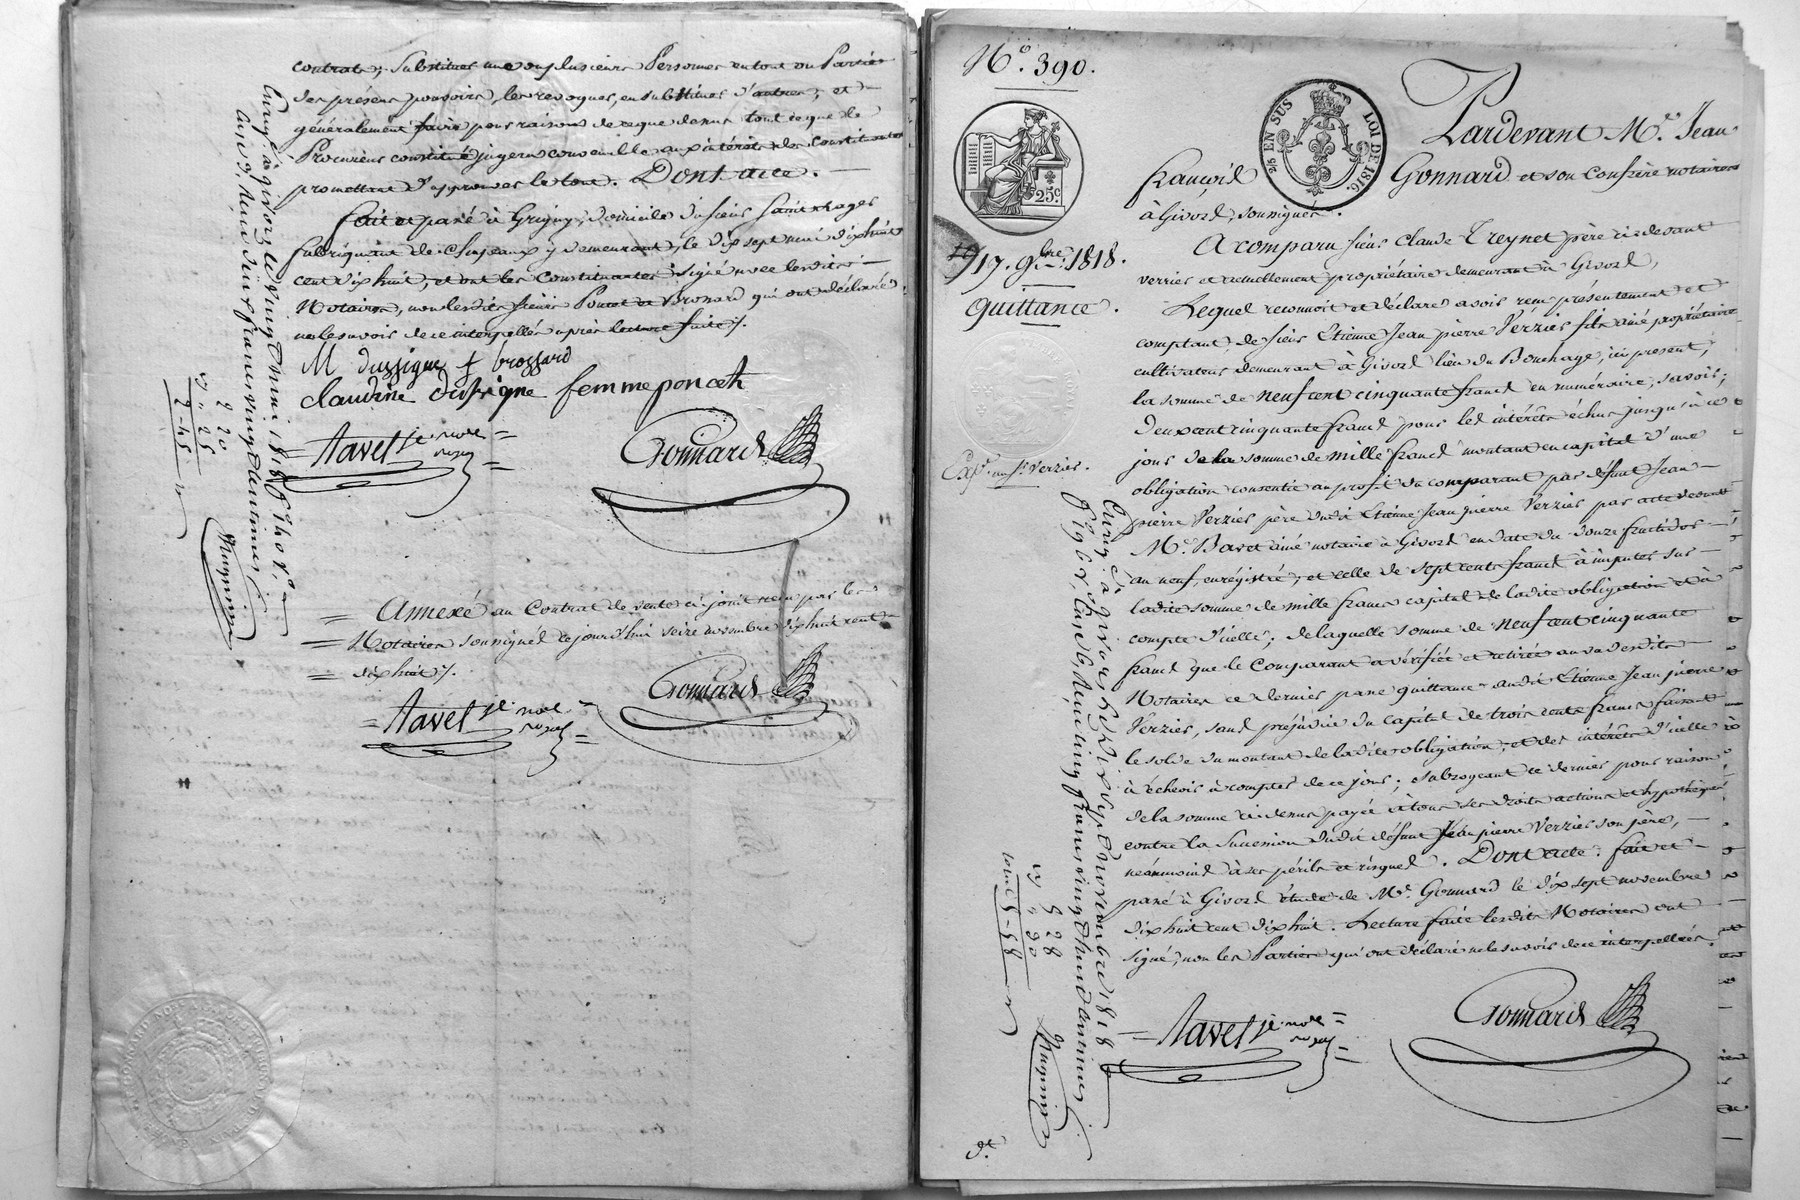 contrats; substituer une ou plusieurs Personnes en tout ou Partie
des présens pouvoirs, les révoquer, en substituer d'autres; et
généralement faire pour raison de ce que dessus tout ce que le
Procureur constitué jugera convenable aux intérêts des Constituantes
promettant d'approuver le tout. Dont acte.
fait et passé à Grigny, domicile du sieur
fabriquant de chapeaux y demeurant, le dix sept mai dixhuit
cent dixhuit, et ont les Constituantes signé avec lesdits
Notaires, non lesdits sieurs Poncet et Brossard qui ont déclaré
ne le savoir de ce interpellés après lecture faite ./.
M dussigne f brossard
claudine dussigne femme ponceth
= Tavel je. nore =
noyal =
Gonnard
= Annexé au Contrat de vente ci-joint reçu par les
= Notaires soussignés cejourd'hui seize novembre dixhuit cent
= dixhuit ./.
= Tavel je. nore =
noyal =
Gonnard
Enregé à givors le vingt mai 1818 fo 140 ro
Case 9, Reçu deux francs vingt centimes
2 20
" 25
2-45
Mugnier
No. 390.
25c.
2/5 EN SUS LOI DE 1816.
17. 9bre. 1818.
Quittance.
Expon. au sr. Verzier.
Pardevant Me. Jean
françois Gonnard et son Confrère notaires
à Givors, soussignés.
A comparu sieur Claude Treynet père ci-devant
verrier et actuellement propriétaire demeurant à Givors,
Lequel reconnoit et déclare avoir reçu présentement et
comptant, de sieur Etienne Jean pierre Verzier fils ainé propriétaire
cultivateur demeurant à Givors lieu du Bouchage, ici présent,
la somme de neuf cent cinquante francs en numéraire; savoir;
deux cent cinquante francs pour les intérêts échus jusqu'à ce
jour de la somme de mille francs montant en capital d'une
obligation consentie au profit du comparant par défunt Jean
pierre Verzier père dudit Etienne Jean pierre Verzier par acte devant
Me. Bavet ainé notaire à Givors en date du douze fructidor
an neuf, enrégistré; et celle de sept cents francs à imputer sur
ladite somme de mille francs capital de ladite obligation et à
compte d'icelle; de laquelle somme de neuf cent cinquante
francs que le Comparant a vérifiée et retirée au vu desdits
Notaires ce dernier passe quittance audit Etienne Jean pierre
Verzier, sans préjudice du capital de trois cents francs faisant
le solde du montant de ladite obligation, et des intérêts d'icelle
à écheoir à compter de ce jour; subrogeant ce dernier pour raison
de la somme ci-dessus payée à tous ses droits actions et hypothèques
contre la succession dudit défunt Jean pierre Verzier son père,
néanmoins à ses périls et risques. Dont acte: fait et
passé à Givors étude de Me. Gonnard le dix sept novembre
dixhuit cent dixhuit. Lecture faite lesdits Notaires ont
signé, non les Parties qui ont déclaré ne le savoir de ce interpellées.
= Tavel je. nore =
noyal =
Gonnard
Enregé à Givors le dix sept novembre 1818
Case 6, Reçu cinq francs vingt huit centimes
5 28
" 90
Mugnier